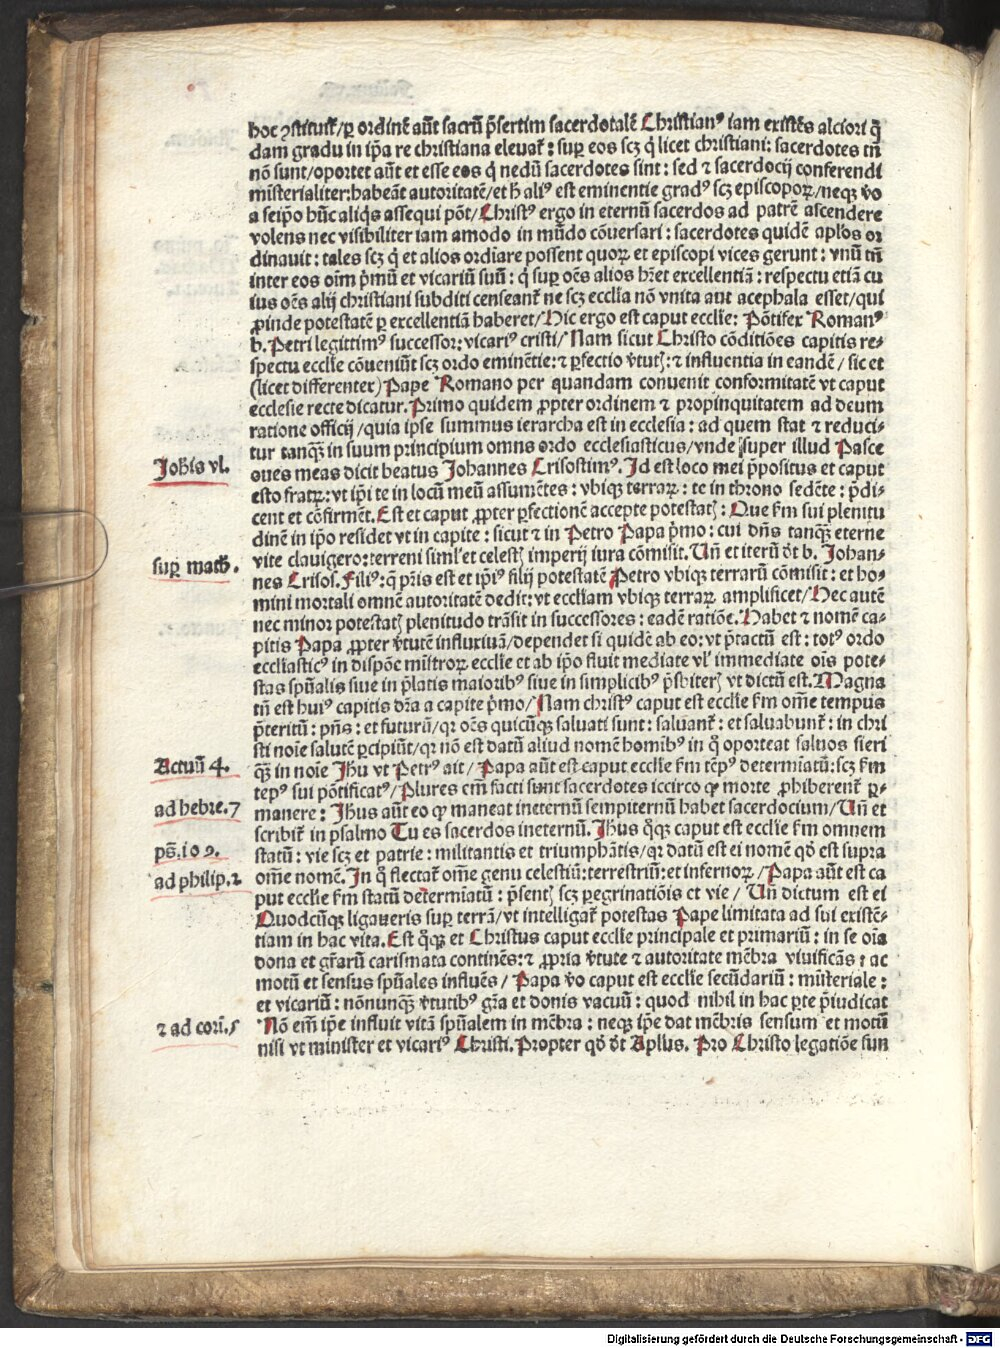 hoc ꝯstituit᷑/ꝑ ordinē aūt sacrū p̄sertim sacerdotalē Christianꝰ iam existēs alciori q̄
dam gradu in ip̄a re christiana eleuat᷑: suꝑ eos scꝫ q̄ licet christiani: sacerdotes tn̄
nō sunt/oportet aūt et esse eos q̄ nedū sacerdotes sint: sed ⁊ sacerdocij conferendi
misterialiter: habeāt autoritatē/et h̄ aliꝰ est eminentie gradꝰ scꝫ episcopoꝝ/neqꝫ v̄o
a seip̄o hūc aliq̄s assequi pōt/Christꝰ ergo in eternū sacerdos ad patrē ascendere
volens nec visibiliter iam amodo in mūdo cōuersari: sacerdotes quidē apl̄os or
dinauit: tales scꝫ q̄ et alios ordiare possent quoꝝ et episcopi vices gerunt: vnū tn̄
inter eos oīm p̄mū et vicariū suū: q̄ suꝑ oēs alios hr̄et excellentiā: respectu etiā cu
ius oēs alij christiani subditi censeant᷑ ne scꝫ eccl̄ia nō vnita aut acephala esset/qui
ꝓinde potestatē ꝑ excellentiā haberet/Hic ergo est caput eccl̄ie: Pōtifex Romanꝰ
b. Petri legittimꝰ successor: vicariꝰ cristi/Nam sicut Christo cōditiōes capitis re⸗
spectu eccl̄ie cōueniūt scꝫ ordo eminētie: ⁊ ꝑfectio v̄tutꝭ: ⁊ influentia in eandē/sic et
(licet differenter) Pape Romano per quandam conuenit conformitatē vt caput
ecclesie recte dicatur. Primo quidem ꝓpter ordinem ⁊ propinquitatem ad deum
ratione officij/quia ipse summus ierarcha est in ecclesia: ad quem stat ⁊ reduci⸗
tur tanqꝫ in suum principium omnis ordo ecclesiasticus/vnde super illud Pasce
Joh̄is vl.
oues meas dicit beatus Johannes Crisostimꝰ. Id est loco mei p̄positus et caput
esto fratꝝ: vt ip̄i te in locū meū assumētes: vbiqꝫ terraꝝ: te in throno sedēte: p̄di⸗
cent et cōfirmēt. Est et caput ꝓpter ꝑfectionē accepte potestatꝭ: Que s̄m sui plenitu
dinē in ip̄o residet vt in capite: sicut ⁊ in Petro Papa p̄mo: cui dn̄s tanqꝫ eterne
suꝑ math.
vite clauigero: terreni siml̄ et celestꝭ imperij iura cōmisit. Vn̄ et iterū d̄t b. Johan⸗
nes Crisos. Filiꝰ: q̄ pr̄is est et ip̄iꝰ filij potestatē Petro vbiqꝫ terrarū cōmisit: et ho⸗
mini mortali omnē autoritatē dedit: vt eccl̄iam vbiqꝫ terraꝝ amplificet/Hec autē
nec minor potestatꝭ plenitudo trāsit in successores: eadē ratiōe. Habet ⁊ nomē ca⸗
pitis Papa ꝓpter v̄tutē influxiuā/dependet si quidē ab eo: vt p̄tactū est: totꝰ ordo
eccl̄iasticꝰ in dispōe mīstroꝝ eccl̄ie et ab ip̄o fluit mediate vl̓ immediate oīs pote⸗
stas spūalis siue in p̄latis maioribꝰ siue in simplicibꝰ p̄sbiterꝭ vt dictū est. Magna
tn̄ est huiꝰ capitis dr̄a a capite p̄mo/Nam christꝰ caput est eccl̄ie s̄m om̄e tempus
p̄teritū: pn̄s: et futurū/qꝛ oēs quicūqꝫ saluati sunt: saluant᷑: et saluabunt᷑: in chri
sti noīe salutē ꝑcipiūt/qꝛ nō est datū aliud nomē homībꝰ in q̄ oporteat saluos fieri
Actuū 4.
qꝫ in noīe Jh̄u vt Petrꝰ ait/Papa aūt est caput eccl̄ie s̄m tēpꝰ determīatū: scꝫ s̄m
tēpꝰ sui pōtificatꝰ/Plures em̄ facti sunt sacerdotes iccirco ꝙ morte ꝓhiberent᷑ ꝑ⸗
ad hebre. 7
manere: Jh̄us aūt eo ꝙ maneat ineternū sempiternū habet sacerdocium/Vn̄ et
scribit᷑ in psalmo Tu es sacerdos ineternū. Jh̄us q̄qꝫ caput est eccl̄ie s̄m omnem
ps̄. 109.
statū: vie scꝫ et patrie: militantis et triumphātis/qꝛ datū est ei nomē qd̄ est supra
ad philip. 2
om̄e nomē. In q̄ flectat᷑ om̄e genu celestiū: terrestriū: et infernoꝝ/Papa aūt est ca
put eccl̄ie s̄m statū determīatū: p̄sentꝭ scꝫ ꝑegrinatiōis et vie/Vn̄ dictum est ei
Quodcūqꝫ ligaueris suꝑ terrā/vt intelligat᷑ potestas Pape limitata ad sui existē⸗
tiam in hac vita. Est q̄qꝫ et Christus caput eccl̄ie principale et primariū: in se oīa
dona et gr̄arū carismata continēs: ⁊ ꝓpria v̄tute ⁊ autoritate mēbra viuificās: ac
motū et sensus spūales influēs/Papa v̄o caput est eccl̄ie secūdariū: mīsteriale:
et vicariū: nōnunqꝫ v̄tutibꝰ gr̄a et donis vacuū: quod nihil in hac ꝑte p̄iudicat
2 ad corī. 5
Nō em̄ ip̄e influit vitā spūalem in mēbra: neqꝫ ip̄e dat mēbris sensum et motū
nisi vt minister et vicariꝰ Christi. Propter qd̄ d̄t Apl̄us. Pro Christo legatiōe fun
Digitalisierung gefördert durch die Deutsche Forschungsgemeinschaft - DFG